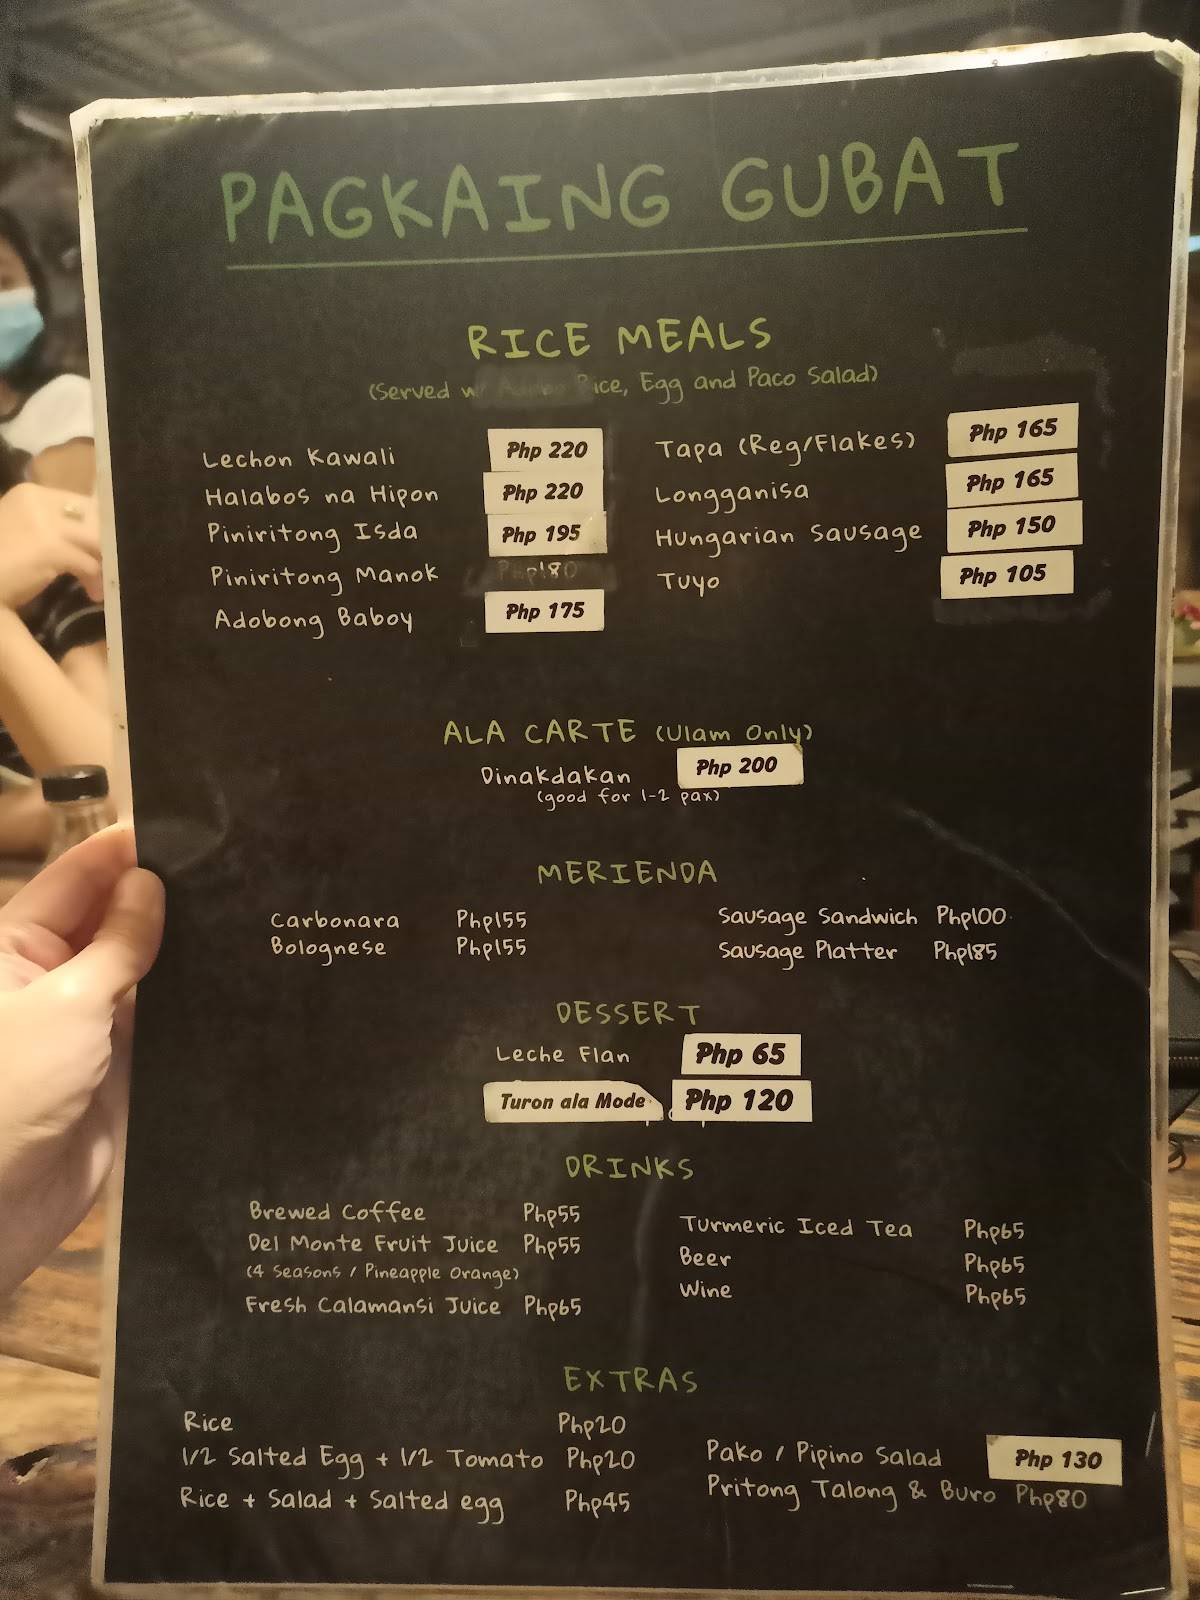 PAGKAING GUBAT
RICE MEALS
(Served w/ Rice, Egg and Paco Salad)
Lechon Kawali Php 220
Halabos na Hipon Php 220
Piniritong Isda Php 195
Piniritong Manok Php180
Adobong Baboy Php 175
Tapa (Reg/Flakes) Php 165
Longganisa Php 165
Hungarian Sausage Php 150
Tuyo Php 105
ALA CARTE (Ulam Only)
Dinakdakan Php 200
(good for 1-2 pax)
MERIENDA
Carbonara Php155
Bolognese Php155
Sausage Sandwich Php100
Sausage Platter Php185
DESSERT
Leche Flan Php 65
Turon ala Mode Php 120
DRINKS
Brewed Coffee Php55
Del Monte Fruit Juice Php55
(4 Seasons / Pineapple Orange)
Fresh Calamansi Juice Php65
Turmeric Iced Tea Php65
Beer Php65
Wine Php65
EXTRAS
Rice Php20
1/2 Salted Egg + 1/2 Tomato Php20
Rice + Salad + Salted egg Php45
Pako / Pipino Salad Php 130
Pritong Talong & Buro Php80